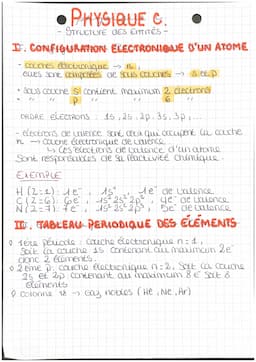 • PHYSIQUE C. •
- STRUCTURE DES ENTITÉS -
I. CONFIGURATION ELECTRONIQUE D'UN ATOME
- couches électronique → n,
elles sont composées de sous couches → s et p
• sous couche s contient maximum 2 électrons
" " p " " 6 "
ORDRE ELECTRONS : 1s, 2s, 2p, 3s, 3p, ...
- électrons de valence sont ceux qui occupent la couche
n → couche électronique de valence
↳ Les électrons de valence d'un atome
sont responsables de sa réactivité chimique.
EXEMPLE
H (Z=1) : 1e⁻, 1s¹, 1e⁻ de valence
C (Z=6) : 6e⁻, 1s² 2s² 2p², 4e⁻ de valence
N (Z=7) : 7e⁻, 1s² 2s² 2p³, 5e⁻ de valence
II. TABLEAU PERIODIQUE DES ÉLÉMENTS
• 1ère période : couche électronique n = 1,
Soit la couche 1s contenant au maximum 2e⁻
donc 2 éléments.
• 2ème p. couche électronique n = 2, Soit la couche
2s et 2p contenant au maximum 8 e⁻ soit 8
éléments
• colonne 18 → Gaz nobles (He, Ne, Ar)